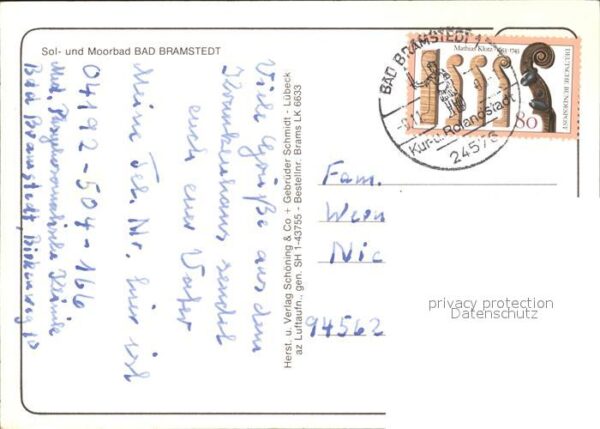 Sol- und Moorbad BAD BRAMSTEDT
Viele Grüße aus dem
Krankenhaus sendet
euch euer Vater
Meine Tel. Nr. hier ist
04192-504-166
Med. Psychosomatische Klinik
Bad Bramstedt, Birkenweg
Herst. u. Verlag Schöning & Co + Gebrüder Schmidt - Lübeck
az Luftaufn., gen. SH 1-43755 - Bestellnr. Brams LK 6633
BAD BRAMSTEDT 1
Kur- u. Rolandstadt
24576
Mathias Klotz 1653-1743
DEUTSCHE BUNDESPOST
80
Fam.
Wern
Nic
94562
privacy protection
Datenschutz